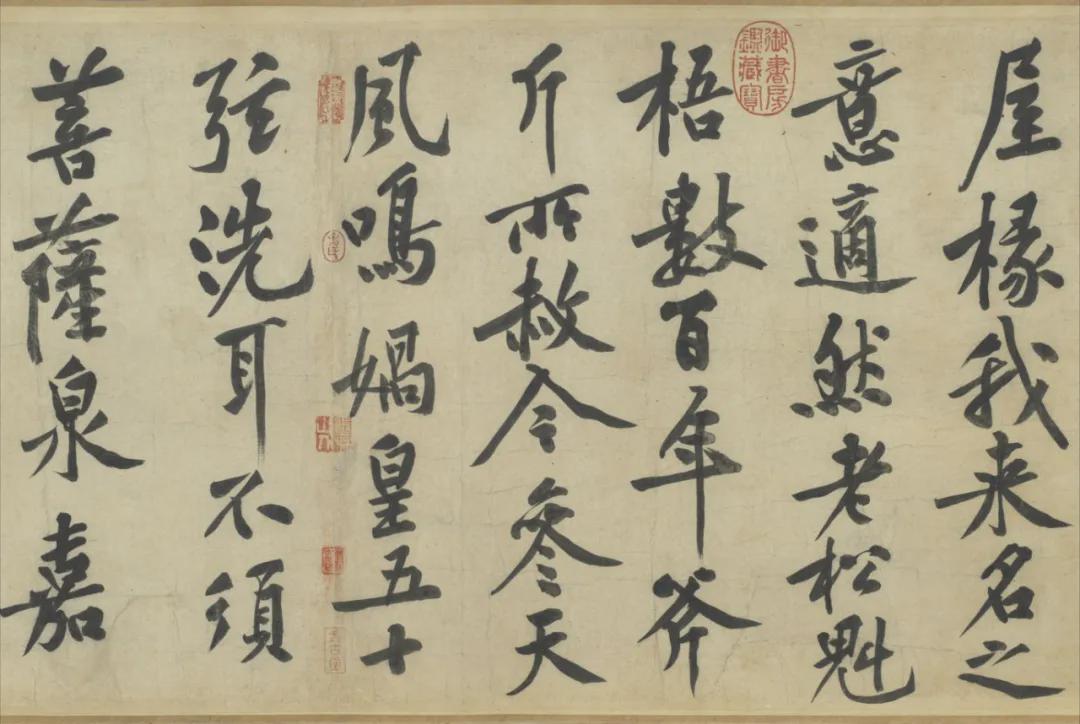 屋椽我来名之
意適然老松魁
梧數百年斧
斤所赦令參天
風鳴媧皇五十
弦洗耳不須
菩薩泉嘉
御書房鑑藏寶